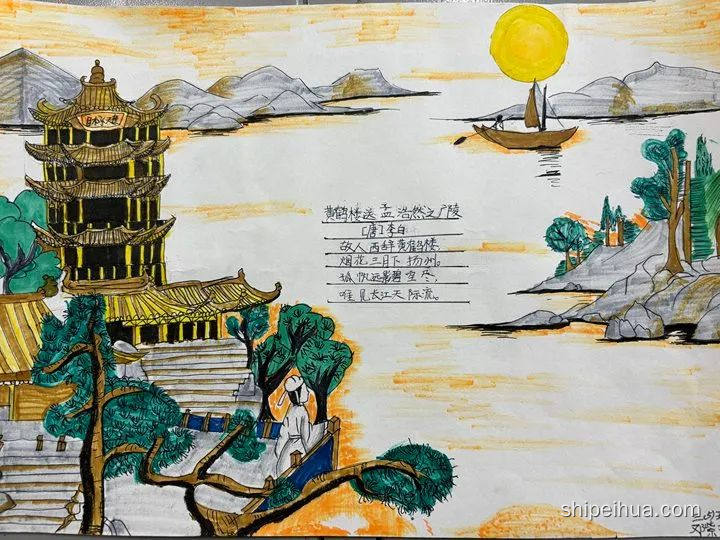 黄鹤楼送孟浩然之广陵
[唐]李白
故人西辞黄鹤楼
烟花三月下扬州。
孤帆远影碧空尽,
唯见长江天际流。
shipeihua.com